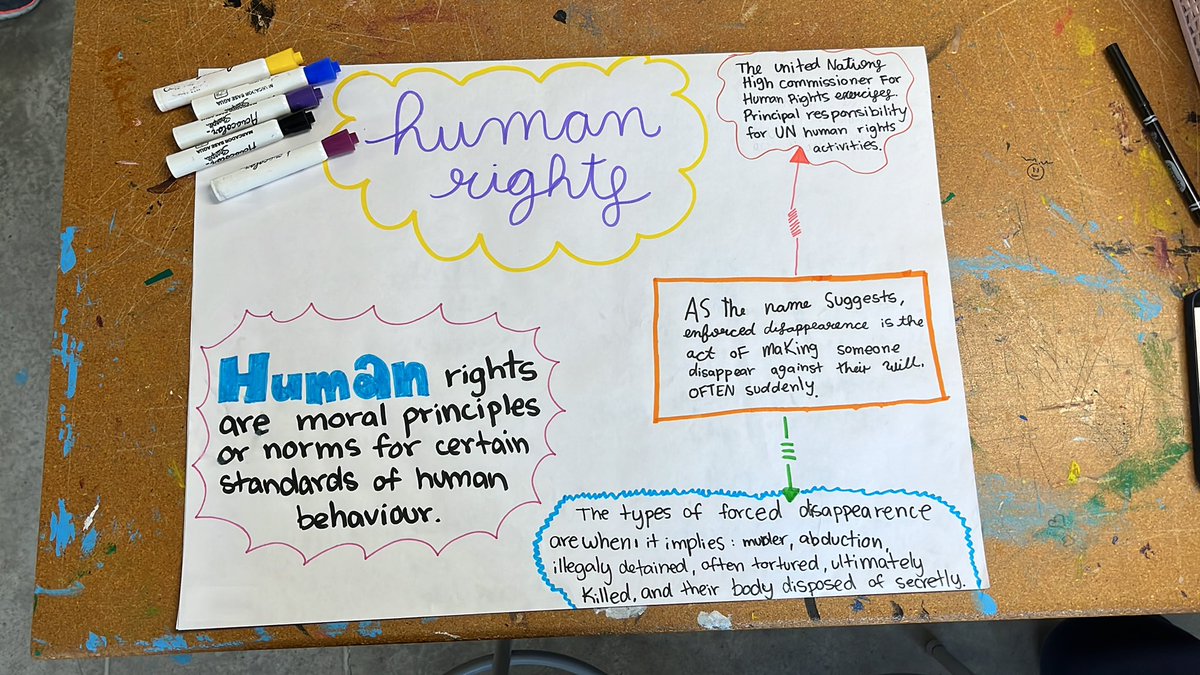 human
rights
The united Nations
High commissioner For
Human Rights exercises.
Principal responsibility
for UN human rights
activities.
As the name Suggests,
enforced disappearence is the
act of making someone
disappear against their will.
OFTEN suddenly.
Human rights
are moral principles
or norms for certain
standards of human
behaviour.
The types of forced disappearence
are when it implies: murder, abduction,
illegaly detained, often tortured, ultimately
Killed, and their body disposed of secretly.
MARCADOR BASE AGUA
Acuacolor
MARCADOR BASE AGUA
Acuacolor